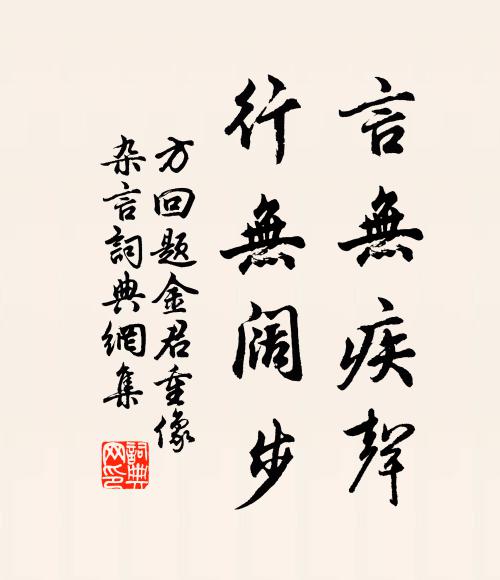 言無疾聲
行無阔步
方回题金君重像
杂言詞典網集
詞典
网印